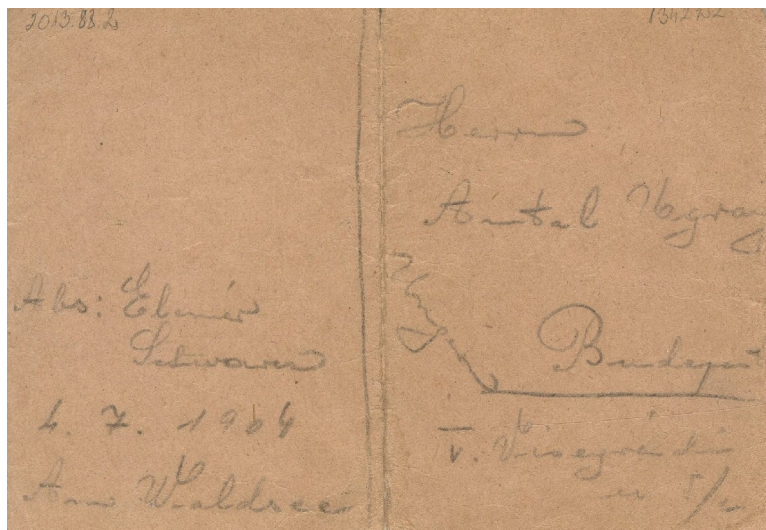 2013.88.2
Abs: Elemér
Schwarcz
4. 7. 1904
Am Waldsee
Herrn
Antal
Ungarn
Budapest
V. Visegrádi
u 5/